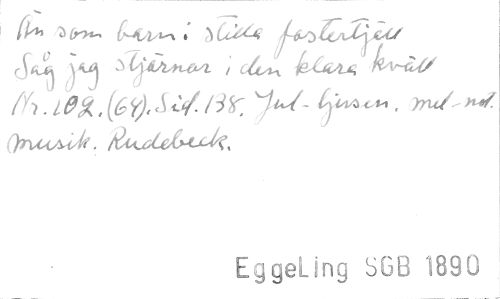 Än som barn i stilla fostertjäll
Såg jag stjärnor i den klara kväll
Nr. 102. (64). Sid. 138. Jul-ljusen. mel-not.
musik. Rudebeck.
EggeLing SGB 1890